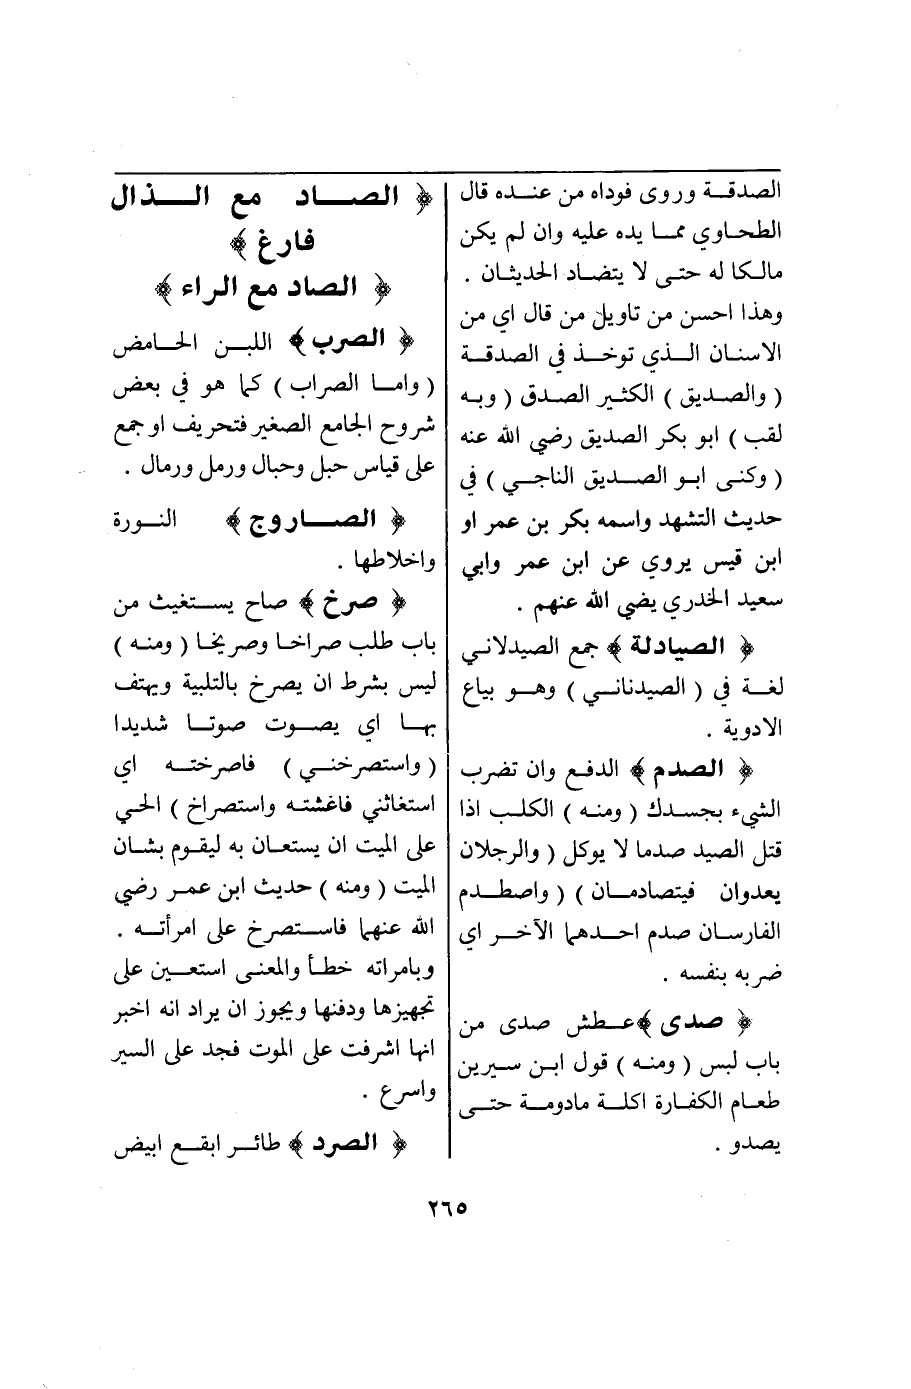 الصدقة وروى فوداه من عنده قال
الطحاوي مما يده عليه وان لم يكن
مالكا له حتى لا يتضاد الحديثان .
وهذا احسن من تاويل من قال اي من
الاسنان الذي توخذ في الصدقة
( والصديق ) الكثير الصدق ( وبه
لقب ) ابو بكر الصديق رضي الله عنه
( وكنى ابو الصديق الناجي ) في
حديث التشهد واسمه بكر بن عمر او
ابن قيس يروي عن ابن عمر وابي
سعيد الخدري يضي الله عنهم .
﴿ الصيادلة ﴾ جمع الصيدلاني
لغة في ( الصيدناني ) وهو بياع
الادوية .
﴿ الصدم ﴾ الدفع وان تضرب
الشيء بجسدك ( ومنه ) الكلب اذا
قتل الصيد صدما لا يوكل ( والرجلان
يعدوان فيتصادمان ) ( واصطدم
الفارسان صدم احدهما الآخر اي
ضربه بنفسه .
﴿ صدى ﴾ عطش صدى من
باب لبس ( ومنه ) قول ابن سيرين
طعام الكفارة اكلة مادومة حتى
يصدو .
﴿ الصاد مع الذال
فارغ ﴾
﴿ الصاد مع الراء ﴾
﴿ الصرب ﴾ اللبن الحامض
( واما الصراب ) كما هو في بعض
شروح الجامع الصغير فتحريف او جمع
على قياس حبل وحبال ورمل ورمال .
﴿ الصاروج ﴾ النورة
واخلاطها .
﴿ صرخ ﴾ صاح يستغيث من
باب طلب صراخا وصريخا ( ومنه )
ليس بشرط ان يصرخ بالتلبية ويهتف
بها اي يصوت صوتا شديدا
( واستصرخني ) فاصرخته اي
استغاثني فاغثته واستصراخ ) الحي
على الميت ان يستعان به ليقوم بشان
الميت ( ومنه ) حديث ابن عمر رضي
الله عنهما فاستصرخ على امرأته .
وبامراته خطأ والمعنى استعين على
تجهيزها ودفنها ويجوز ان يراد انه اخبر
انها اشرفت على الموت فجد على السير
واسرع .
﴿ الصرد ﴾ طائر ابقع ابيض
٢٦٥